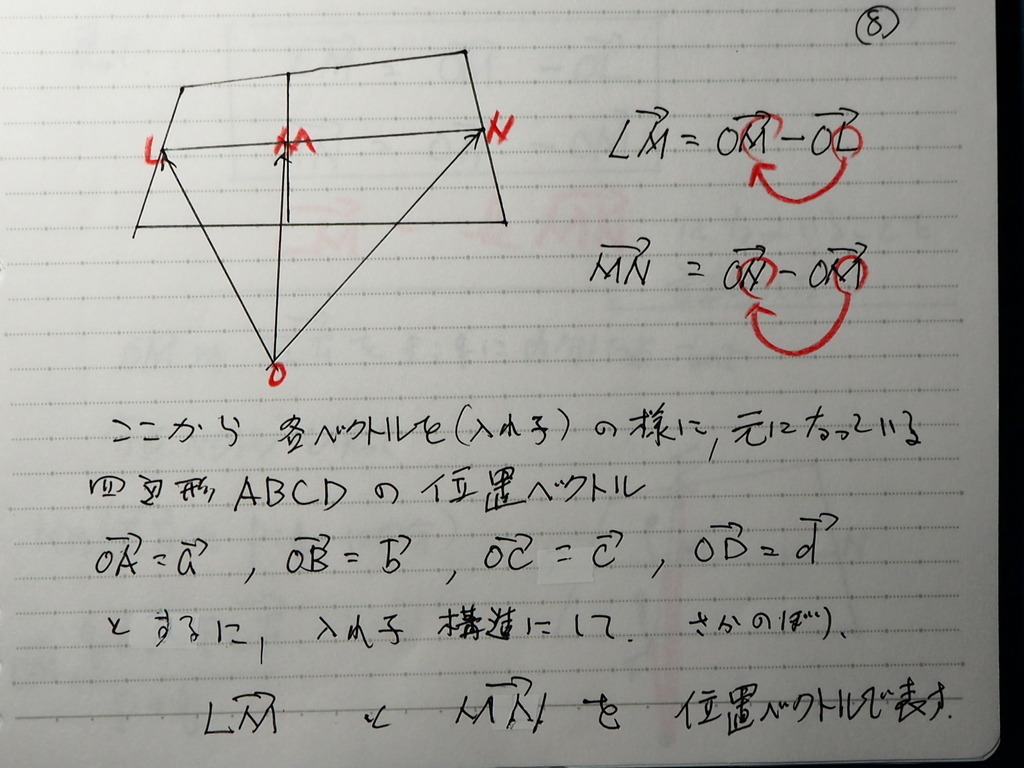 ⑧
L M N
LM→ = OM→ − OL→
MN→ = ON→ − OM→
O
ここから 各ベクトルを(入れ子)の様に,元になっている
四角形 ABCD の 位置ベクトル
OA→ = a→ , OB→ = b→ , OC→ = c→ , OD→ = d→
とするに, 入れ子 構造にして. さかのぼり、
LM→ と MN→ を 位置ベクトルで表す.